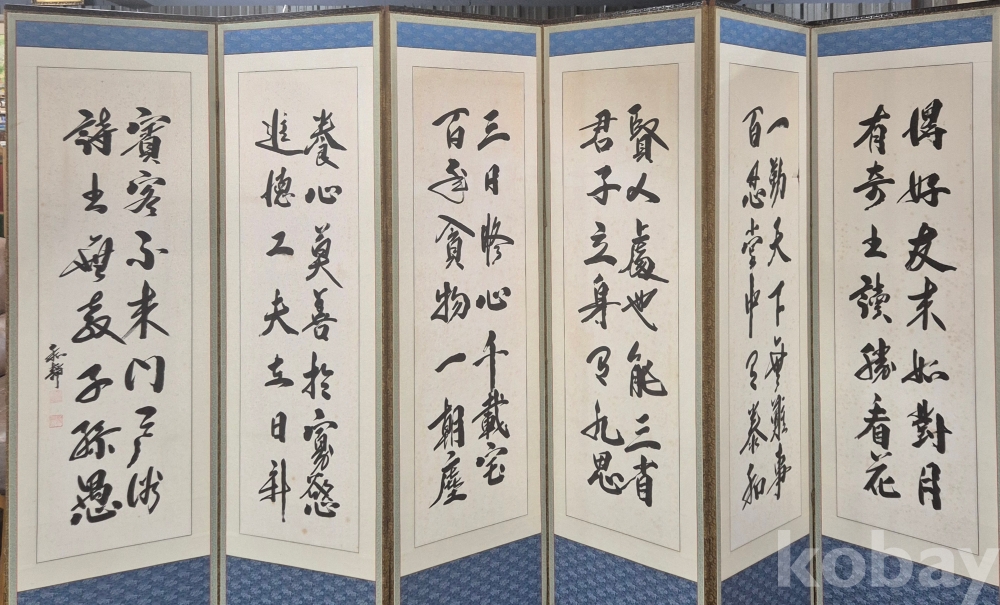 得好友來如對月
有奇書讀勝看花
一勤天下無難事
百忍堂中有泰和
賢人處世能三省
君子立身有九思
三日修心千載宝
百年貪物一朝塵
養心莫善於寡慾
進德工夫在日新
賓客不來門戶俗
詩書無敎子孫愚
kobay